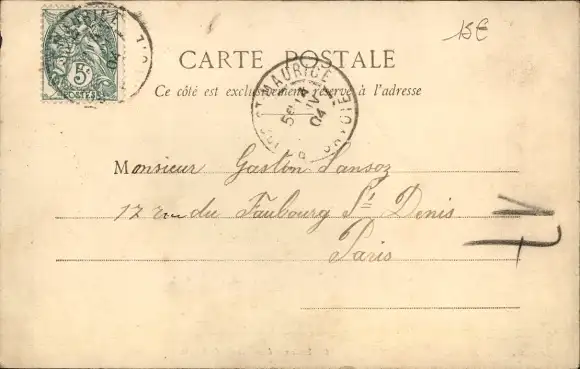 15€
5c
POSTES
CARTE POSTALE
Ce côté est exclusivement réservé à l'adresse
ST MAURICE
04
Monsieur Gaston Sansoz
12 rue du Faubourg St Denis
Paris